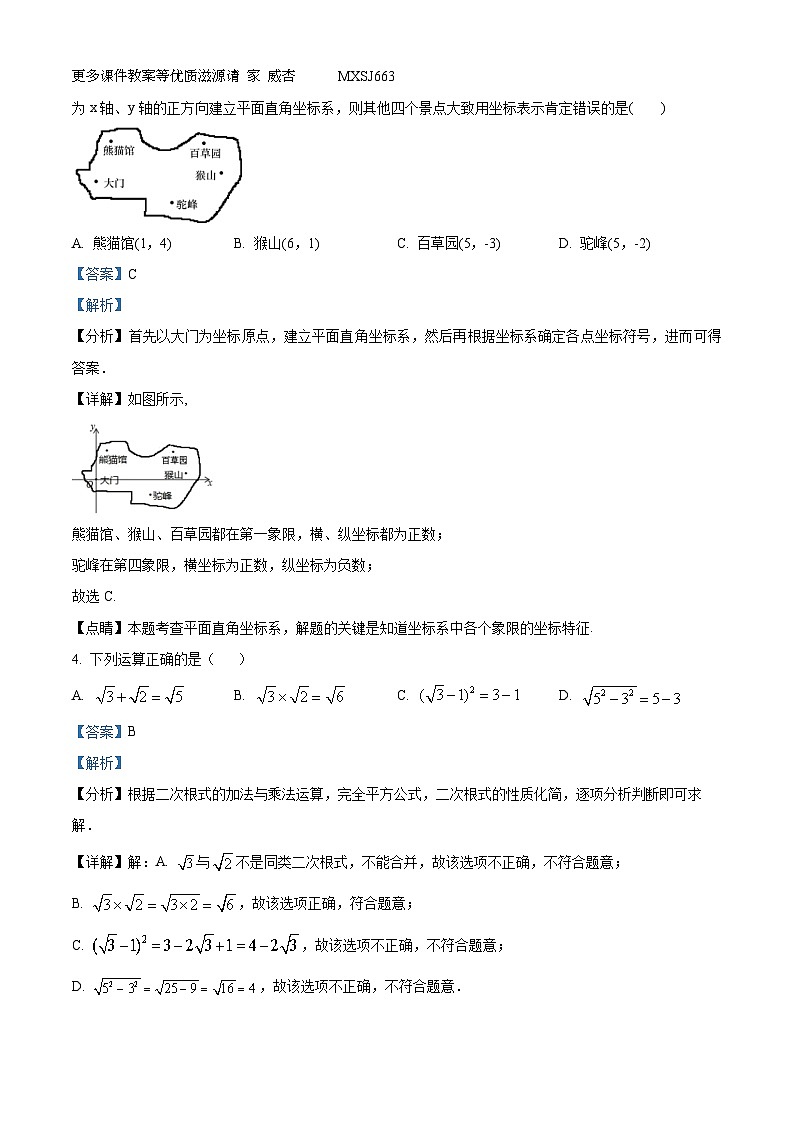 更多课件教案等优质滋源请 家 威杏 MXSJ663
为 x 轴、y 轴的正方向建立平面直角坐标系，则其他四个景点大致用坐标表示肯定错误的是( )
熊猫馆
百草园
猴山
大门
驼峰
A. 熊猫馆(1，4) B. 猴山(6，1) C. 百草园(5，-3) D. 驼峰(5，-2)
【答案】C
【解析】
【分析】首先以大门为坐标原点，建立平面直角坐标系，然后再根据坐标系确定各点坐标符号，进而可得
答案．
【详解】如图所示,
y
熊猫馆
百草园
猴山
O 大门 x
驼峰
熊猫馆、猴山、百草园都在第一象限，横、纵坐标都为正数；
驼峰在第四象限，横坐标为正数，纵坐标为负数；
故选 C.
【点睛】本题考查平面直角坐标系，解题的关键是知道坐标系中各个象限的坐标特征.
4. 下列运算正确的是（ ）
A. √3+√2=√5 B. √3×√2=√6 C. (√3−1)²=3−1 D. √(5²−3²)=5−3
【答案】B
【解析】
【分析】根据二次根式的加法与乘法运算，完全平方公式，二次根式的性质化简，逐项分析判断即可求
解．
【详解】解：A. √3与√2不是同类二次根式，不能合并，故该选项不正确，不符合题意；
B. √3×√2=√(3×2)=√6，故该选项正确，符合题意；
C. (√3−1)²=3−2√3+1=4−2√3，故该选项不正确，不符合题意；
D. √(5²−3²)=√(25−9)=√16=4，故该选项不正确，不符合题意．